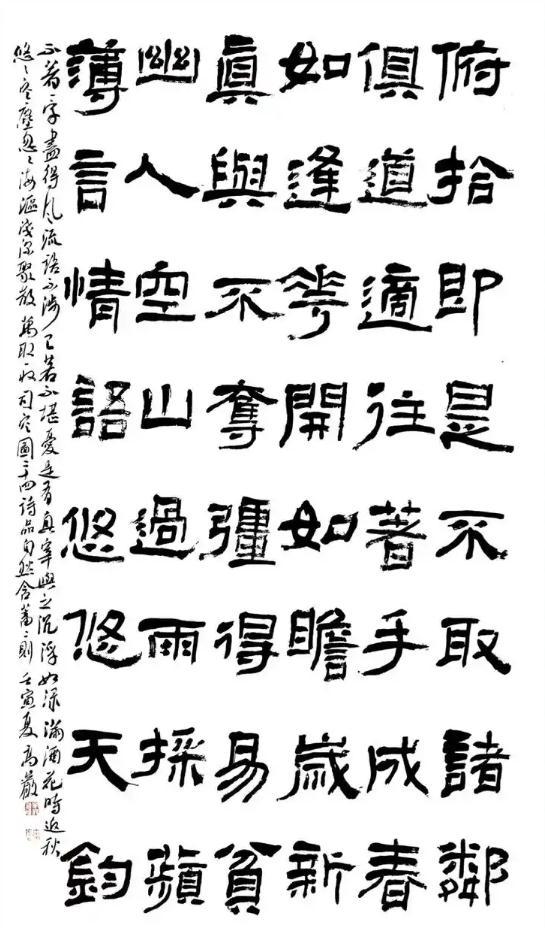 俯拾即是不取諸鄰
俱道適往著手成春
如逢花開如瞻歲新
眞與不奪彊得易貧
幽人空山過雨採蘋
薄言情語悠悠天鈞
不著一字盡得風流語不涉己若不堪憂是有真宰與之沉浮如淥滿酒花時返秋
悠悠空塵忽忽海漚淺深聚散萬取一收司空圖二十四詩品自然含蓄二則壬寅夏高嚴